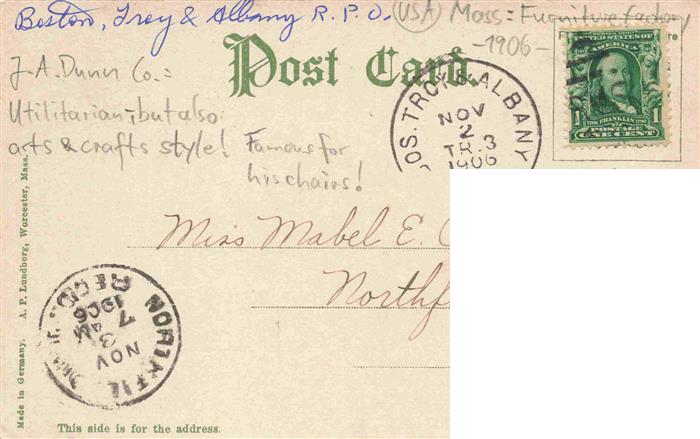 Boston, Troy & Albany R.P.O. (USA) Mass = Furniture factory
-1906-
Post Card.
J.A. Dunn Co. =
Utilitarian, but also
arts & crafts style! Famous for
his chairs!
OS. TROY & ALBANY
NOV
2
TR. 3
1906
SERIES 1902
UNITED STATES OF AMERICA
1 FRANKLIN 1
POSTAGE
ONE CENT
Miss Mabel E.
Northf
NOV
3
AM
7
1906
REC'D
Made in Germany. A. P. Lundborg, Worcester, Mass.
This side is for the address.